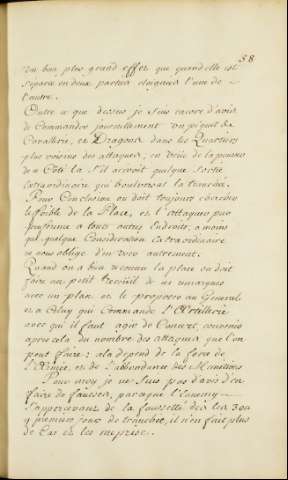 58
un bien plus grand effet que quand elle est
separée en deux parties eloignées l'une de
l'autre.
Outre ce que dessus je suis encore d'avis
de Commander journellement un piquet de
Cavallerie, et Dragons dans les Quartiers
plus voisins des attaques, en vüe de
de Côté là s'il arrivoit quelque Sortie
extraordinaire qui bouleversat la tranchée.
Pour Conclusion on doit toujours chercher
le foible de la Place, et l'attaquer par
preference a tous autres Endroits, a moins
que quelque Consideration extraordinaire
ne nous oblige d'en user autrement.
Quand on a bien reconnu la place on doit
faire un petit recüeil de ses remarques
avec un plan et le proposer au General
et a Celuy qui Commande l'Artillerie
avec qui il faut agir de Concert, convenir
apres cela du nombre des attaques que l'on
peut faire: cela depend de la force de
l'Armée, et de l'abondance des Munitions
Pour moy je ne suis pas d'avis d'en
faire de fausses, parceque l'Ennemy
s'appercevant de la fausseté des les 3.eme
premiers jours de tranchée, il n'en fait plus
de Cas et les meprise.